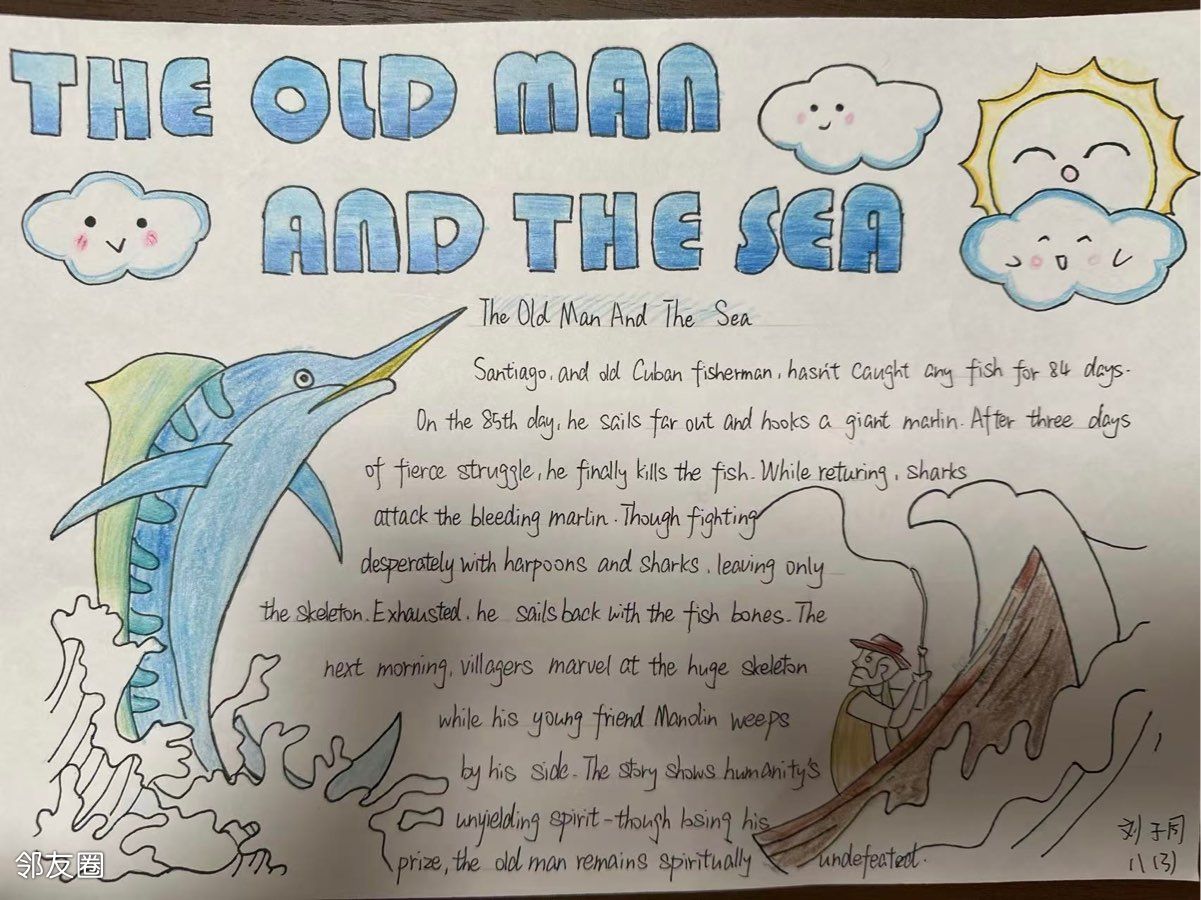 THE OLD MAN
AND THE SEA
The Old Man And The Sea
Santiago, and old Cuban fisherman, hasn't caught any fish for 84 days.
On the 85th day, he sails far out and hooks a giant marlin. After three days
of fierce struggle, he finally kills the fish. While returing, sharks
attack the bleeding marlin. Though fighting
desperately with harpoons and sharks, leaving only
the skeleton. Exhausted, he sails back with the fish bones. The
next morning, villagers marvel at the huge skeleton
while his young friend Manolin weeps
by his side. The story shows humanity's
unyielding spirit-though losing his
prize, the old man remains spiritually undefeated.
刘子同
八(3)
邻友圈